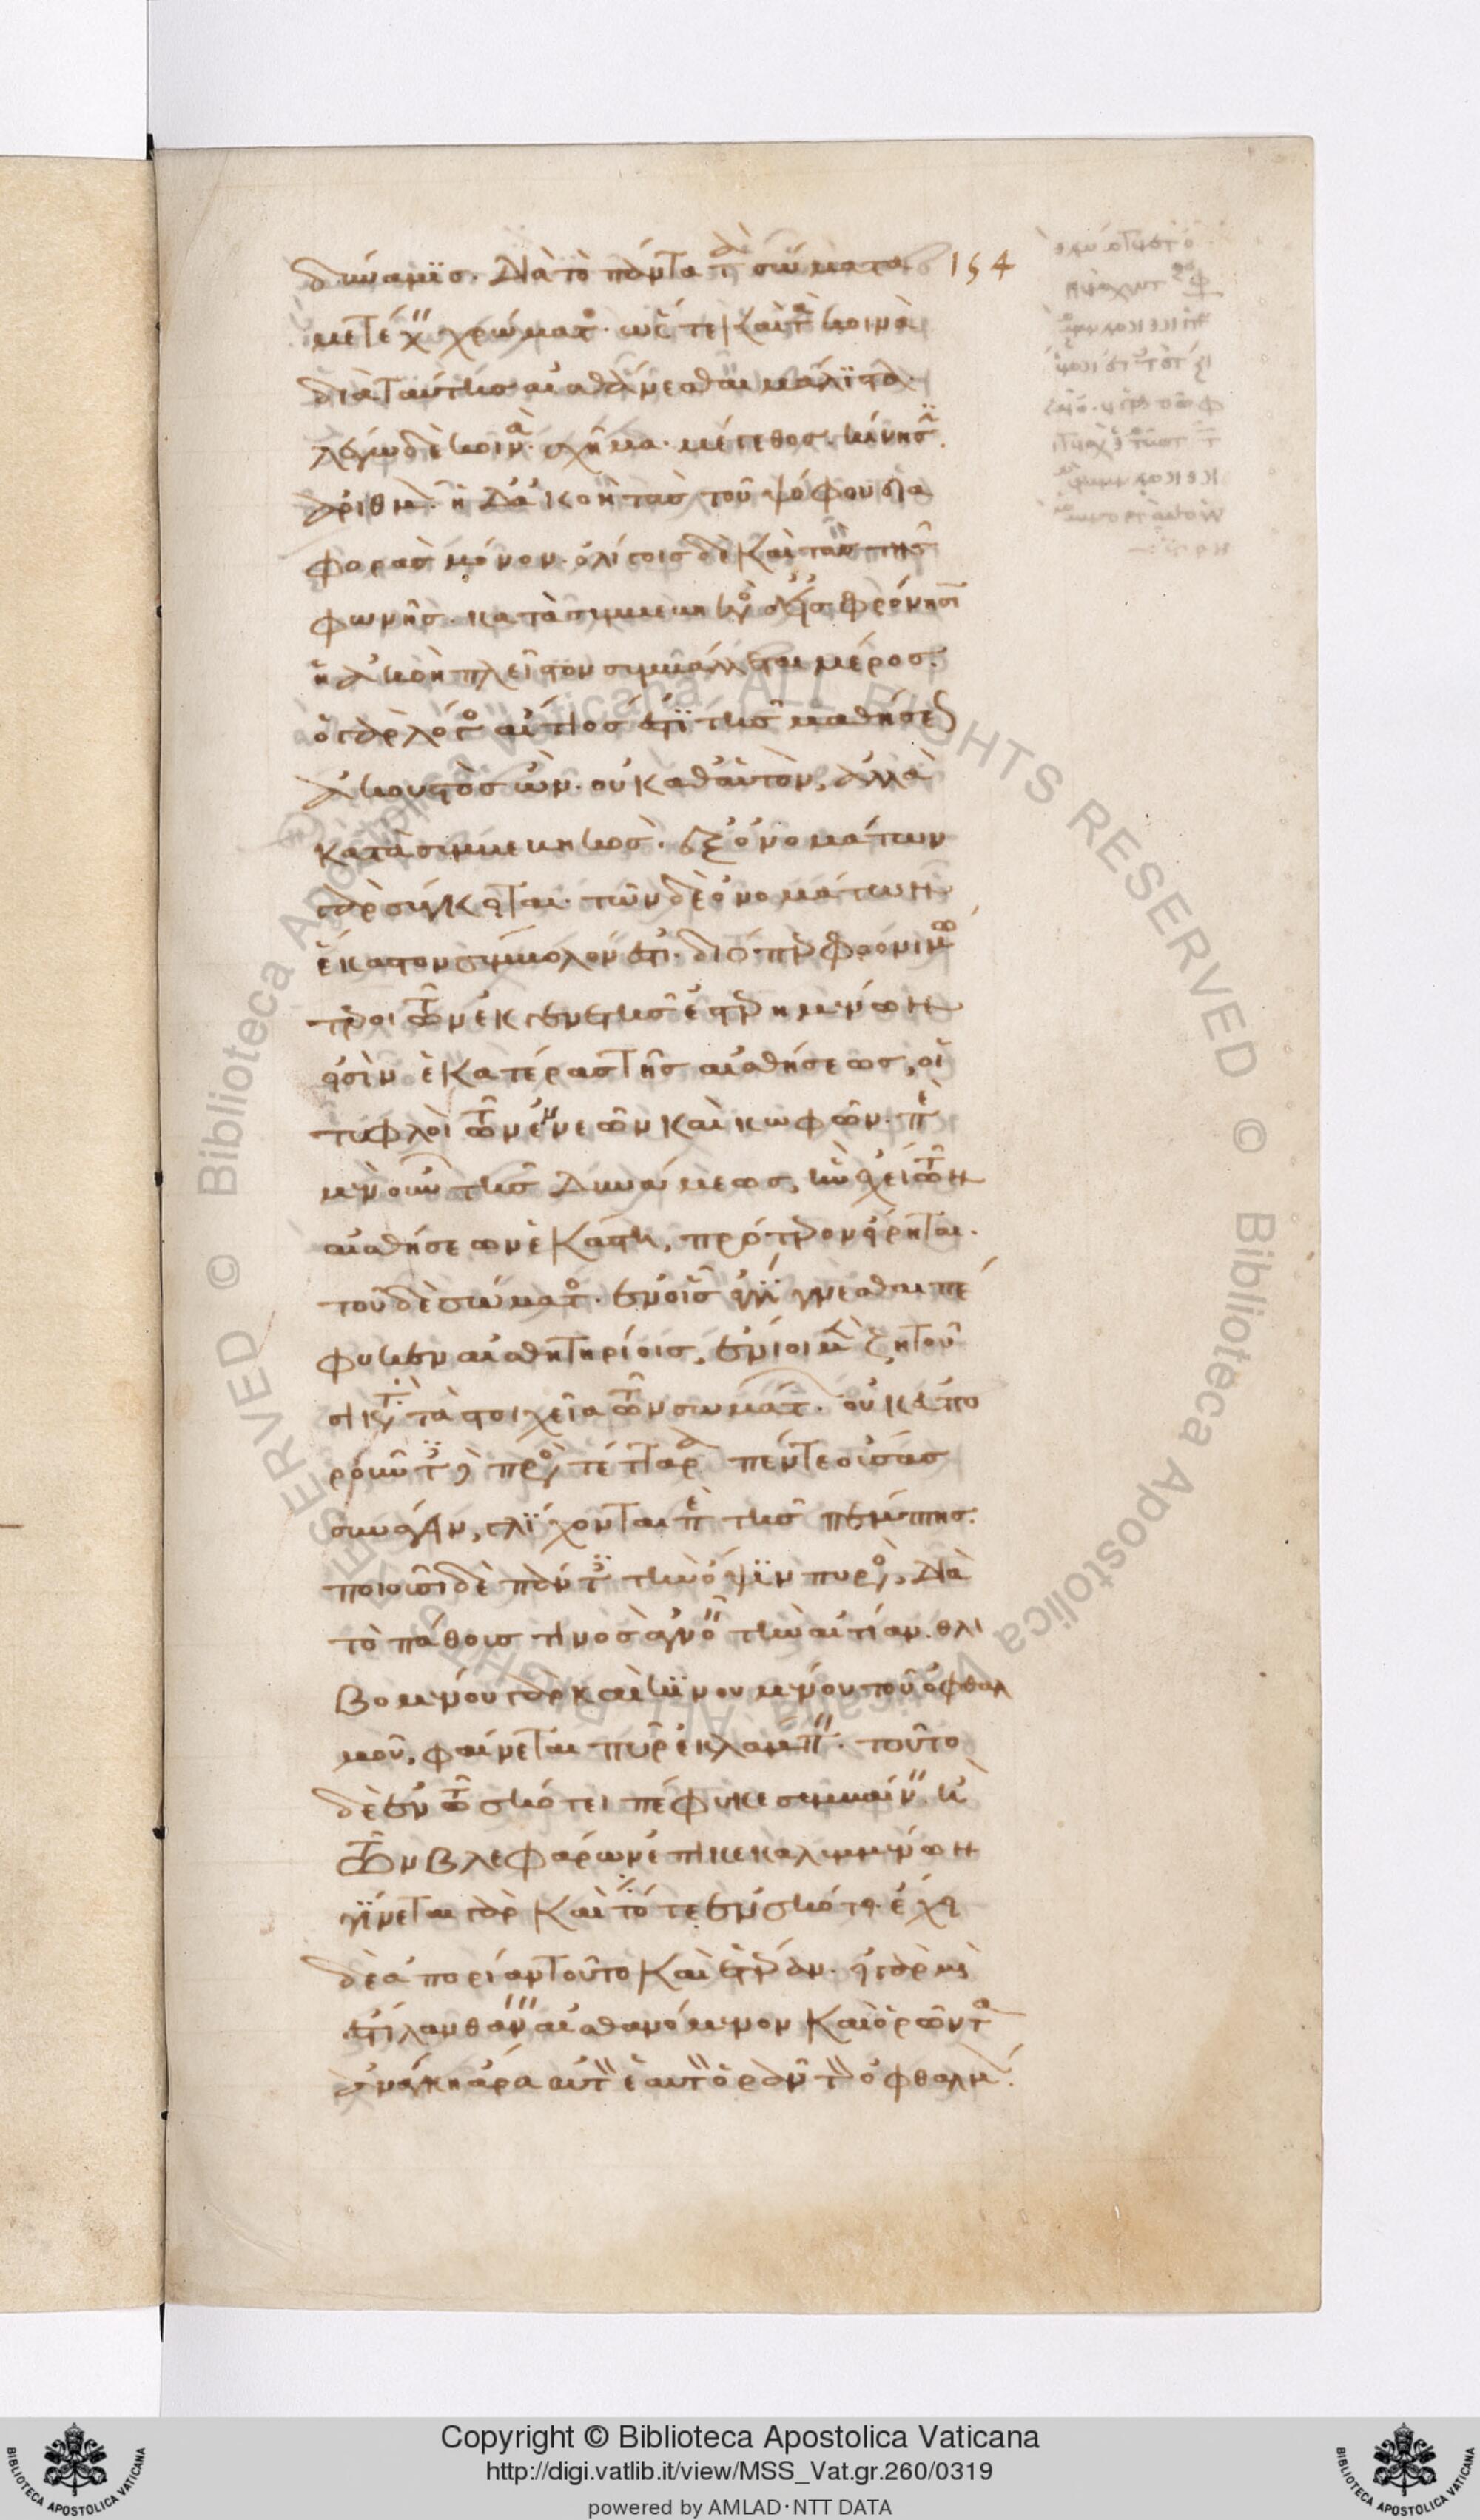 δύναμις. διὰ τὸ πάντα τὰ σώματα 154
μετέχειν χρώματος. ὥστε καὶ τὰ κοινὰ
διὰ ταύτης αἰσθάνεσθαι μάλιστα.
λέγω δὲ κοινὰ. σχῆμα. μέγεθος. κίνησιν.
ἀριθμόν. ἡ δ' ἀκοὴ τὰς τοῦ ψόφου δια
φορὰς μόνον. ὀλίγοις δὲ καὶ τὰς τῆς
φωνῆς. κατὰ συμβεβηκὸς δὲ πρὸς φρόνησιν
ἡ ἀκοὴ πλεῖστον συμβάλλεται μέρος.
ὁ γὰρ λόγος αἴτιός ἐστι τῆς μαθήσεως
ἀκουστὸς ὤν. οὐ καθ' αὑτὸν, ἀλλὰ
κατὰ συμβεβηκός. ἐξ ὀνομάτων
γὰρ σύγκειται. τῶν δὲ ὀνομάτων
ἕκαστον σύμβολόν ἐστι. διόπερ φρονιμώ
τεροι τῶν ἐκ γενετῆς ἐστερημένων
εἰσὶν ἑκατέρας τῆς αἰσθήσεως, οἱ
τυφλοὶ τῶν ἐνεῶν καὶ κωφῶν. περὶ
μὲν οὖν τῆς δυνάμεως, ἣν ἔχει τῶν
αἰσθήσεων ἑκάστη, πρότερον εἴρηται.
τοῦ δὲ σώματος. ἐν οἷς γίγνεσθαι πέ
φυκεν αἰσθητηρίοις, ἔνιοι μὲν ζητοῦ
σι κατὰ τὰ στοιχεῖα τῶν σωμάτων. οὐκ εὐπο
ροῦντες δὲ πρὸς τέτταρα πέντε οὔσας
συνάγειν, γλίχονται περὶ τῆς πέμπτης.
ποιοῦσι δὲ πάντες τὴν ὄψιν πυρὸς, διὰ
τὸ πάθους τινὸς ἀγνοεῖν τὴν αἰτίαν. θλι
βομένου γὰρ καὶ κινουμένου τοῦ ὀφθαλ
μοῦ, φαίνεται πῦρ ἐκλάμπειν. τοῦτο
δὲ ἐν τῷ σκότει πέφυκε συμβαίνειν. ἢ
τῶν βλεφάρων ἐπικεκαλυμμένων
γίνεται γὰρ καὶ τότε ἐν σκότει. ἔχει
δὲ ἀπορίαν τοῦτο καὶ ἑτέραν. εἰ γὰρ μὴ
ἔστι λανθάνειν αἰσθανόμενον καὶ ὁρῶντα
ἀνάγκη ἄρα αὐτὸν ἑαυτὸν ὁρᾶν τὸν ὀφθαλμόν.
© Biblioteca Apostolica Vaticana ALL RIGHTS RESERVED
Copyright © Biblioteca Apostolica Vaticana
http://digi.vatlib.it/view/MSS_Vat.gr.260/0319
powered by AMLAD·NTT DATA
BIBLIOTECA APOSTOLICA VATICANA
BIBLIOTECA APOSTOLICA VATICANA